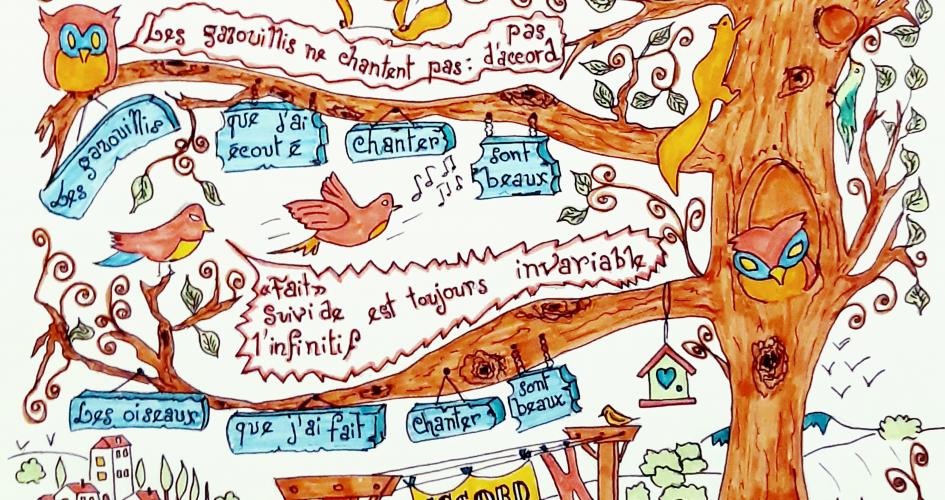 Les gazouillis ne chantent pas : pas d'accord
Les gazouillis
que j'ai
écouté
chanter
sont
beaux
«Fait»
suivi de est toujours invariable
l'infinitif
Les oiseaux
que j'ai fait
chanter
sont
beaux
ACCORD